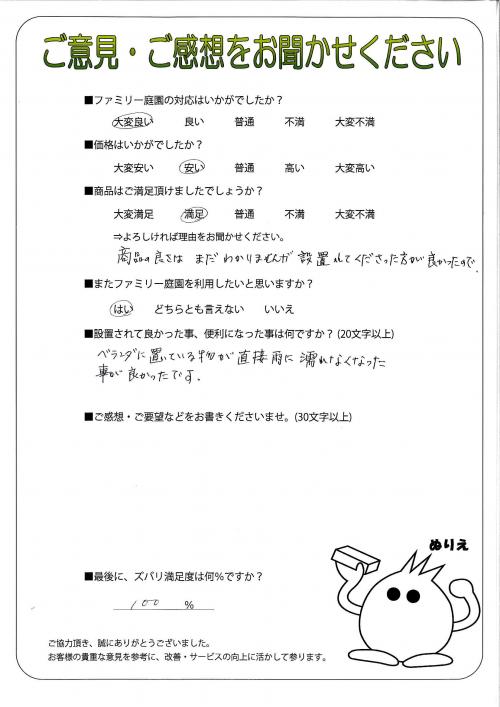 ご意見・ご感想をお聞かせください
■ファミリー庭園の対応はいかがでしたか？
大変良い 良い 普通 不満 大変不満
■価格はいかがでしたか？
大変安い 安い 普通 高い 大変高い
■商品はご満足頂けましたでしょうか？
大変満足 満足 普通 不満 大変不満
⇒よろしければ理由をお聞かせください。
商品の良さは まだ わかりませんが 設置してくださった方が良かったので.
■またファミリー庭園を利用したいと思いますか？
はい どちらとも言えない いいえ
■設置されて良かった事、便利になった事は何ですか？(20文字以上)
ベランダに置いている物が直接雨に濡れなくなった
事が良かったです.
■ご感想・ご要望などをお書きくださいませ。(30文字以上)
ぬりえ
■最後に、ズバリ満足度は何％ですか？
100 %
ご協力頂き、誠にありがとうございました。
お客様の貴重な意見を参考に、改善・サービスの向上に活かして参ります。